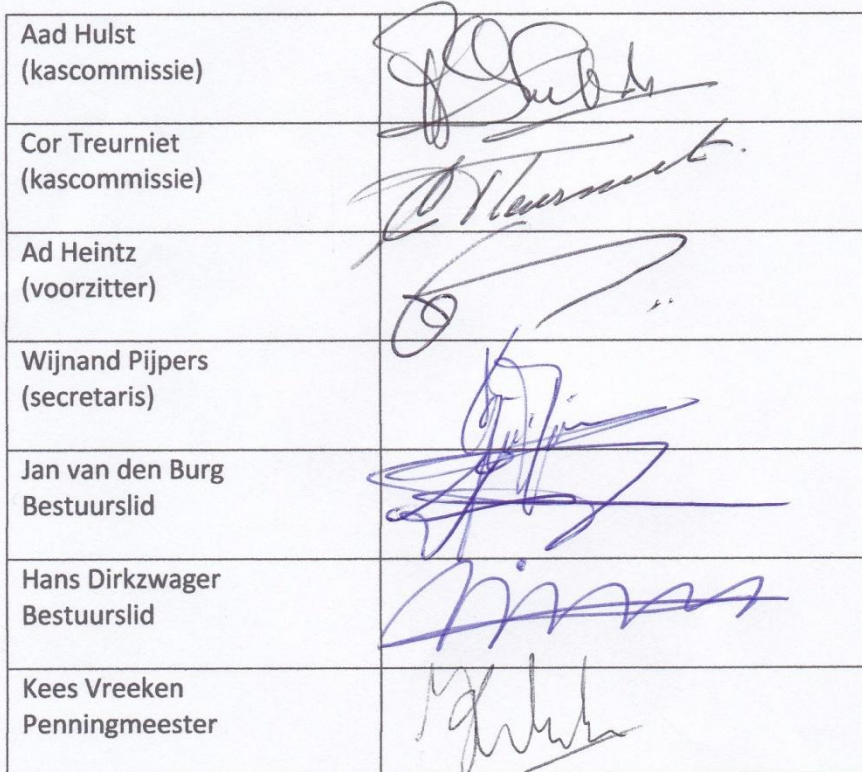 Aad Hulst
(kascommissie)
Cor Treurniet
(kascommissie)
C Treurniet.
Ad Heintz
(voorzitter)
Wijnand Pijpers
(secretaris)
Jan van den Burg
Bestuurslid
Hans Dirkzwager
Bestuurslid
Kees Vreeken
Penningmeester